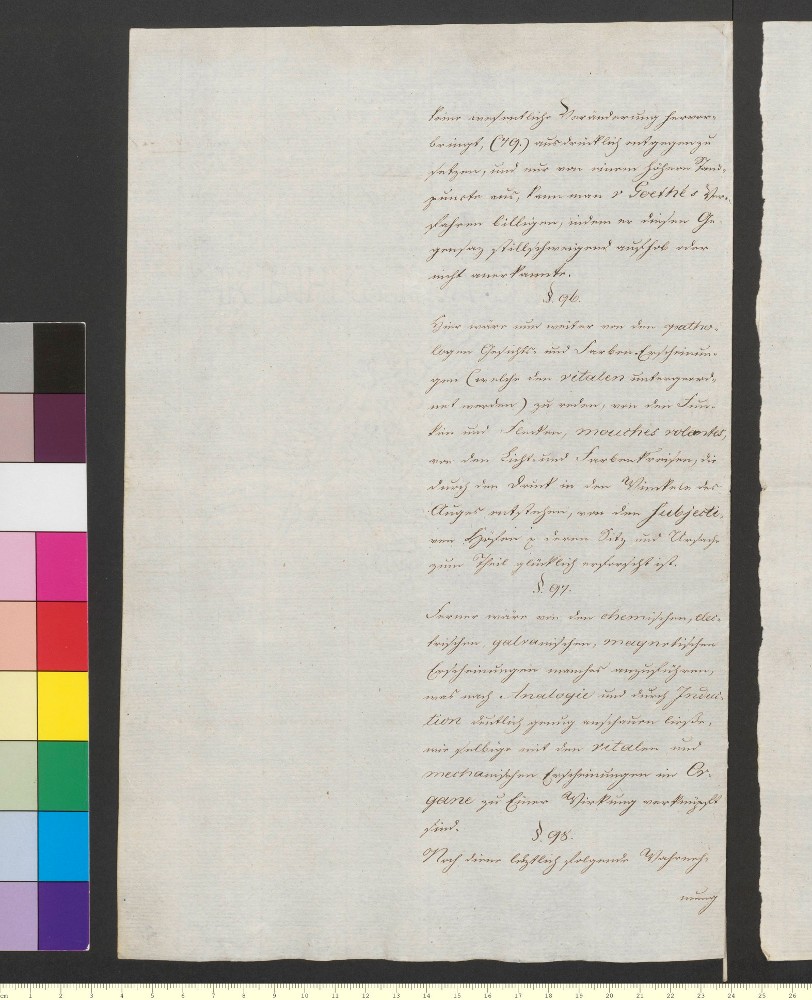 keine wesentliche Veränderung hervor-
bringt, (79.) ausdrücklich entgegenzu
setzen, und nur von einem höhern Stand-
puncte aus, kann man v Goethes Ver-
fahren billigen, indem er diesen Ge-
gensaz stillschweigend aufhob oder
nicht anerkannte.
§. 96.
Hier wäre nun weiter von den patho-
logen Gesichts- und Farben-Erscheinun-
gen (welche den vitalen untergeord-
net werden) zu reden, von den Fun-
ken und Flecken, mouches volantes,
von den Licht- und Farbenkreisen, die
durch den Druck in den Winkeln des
Auges entstehen, von den subjecti-
ven Höfen deren Sitz und Ursache
zum Theil glücklich erforscht ist.
§. 97.
Ferner wäre von den chemischen, elec-
trischen galvanischen, magnetischen
Erscheinungen manches anzuführen,
was nach Analogie und durch Induc-
tion deutlich genug anschauen ließe,
wie selbige mit den vitalen und
mechanischen Erscheinungen im Or-
gane zu Einer Wirkung verknüpft
sind.
§. 98.
Noch diene letztlich folgende Wahrneh-
mung